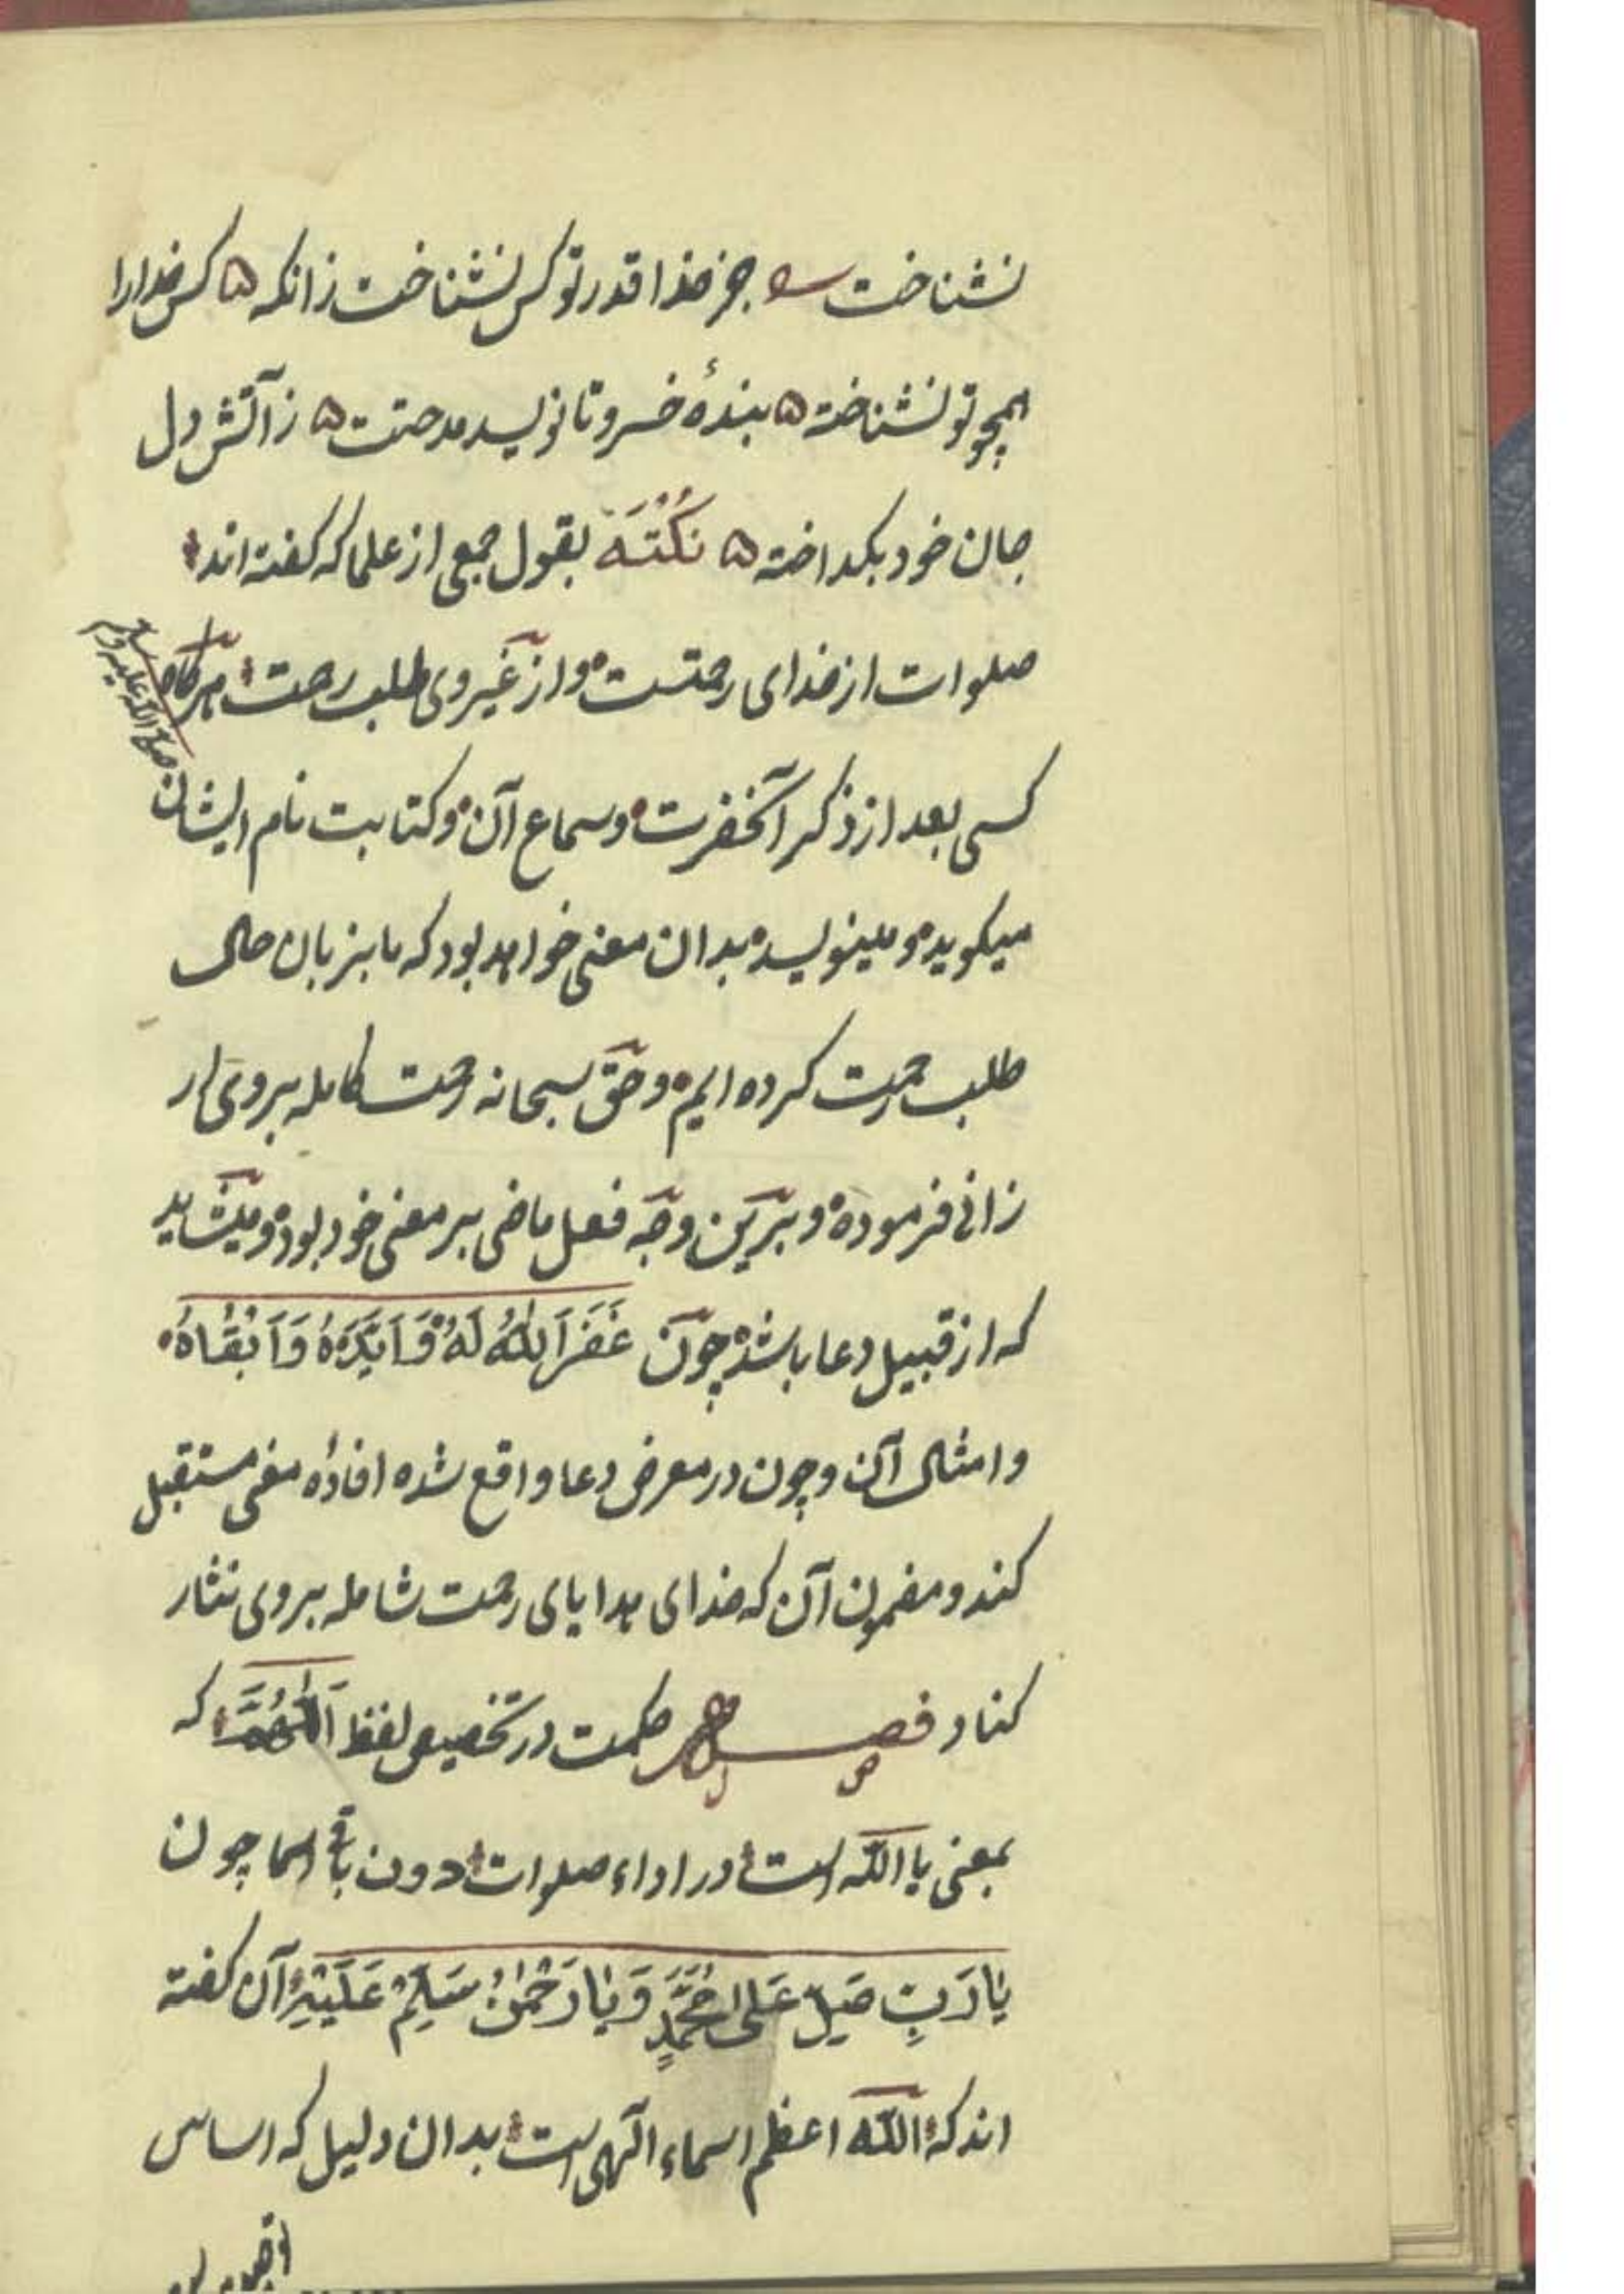 نشناخت جز خدا قدر تو کس نشناخت زانکه ۵ کس خدا را
همچو تو نشناخته ۵ بندهٔ خسرو تا نویسد مدحتت ۵ ز آتش دل
جان خود بکداخته ۵ نُکْتَه بقول جمعی از علما که کفته اند
صلوات از خدای رحمتست و از غیر وی طلب رحمت هرکاه
کسی بعد از ذکر آنحضرت و سماع آن و کتابت نام ایشان
صلی الله علیه وسلم
میکوید و مینویسد بدان معنی خواهد بود که ما بزبان حال
طلب رحمت کرده ایم و حق سبحانه رحمت کامله بر وی ار
زانی فرموده و برین وجه فعل ماضی بر معنی خود بود و میشاید
که از قبیل دعا باشد چون غَفَرَ اللهُ لَهُ وَاَیَّدَهُ وَاَبْقَاهُ
و امثال آن و چون در معرض دعا واقع شده افادهٔ معنی مستقبل
کند و مضمون آن که خدای هدایای رحمت شامله بر وی نثار
کناد فصل حکمت در تخصیص لفظ اَللّٰهُمَّ که
بمعنی یا الله است در اداء صلوات دون باقی اسما چون
یَا رَبِّ صَلِّ عَلٰی مُحَمَّدٍ وَیَا رَحْمٰنُ سَلِّمْ عَلَیْهِ آن کفته
اند که الله اعظم اسماء الهی است بدان دلیل که اساس